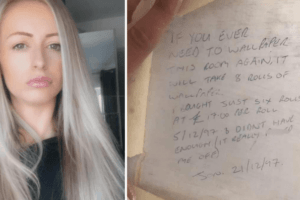 IF YOU EVER
NEED TO WALLPAPER
THIS ROOM AGAIN IT
WILL TAKE 8 ROLLS OF
WALLPAPER
I BOUGHT JUST SIX ROLLS
AT £17.00 PER ROLL
5/12/97 & DIDN'T HAVE
ENOUGH (IT REALLY
ME OFF)
Jon 21/12/97